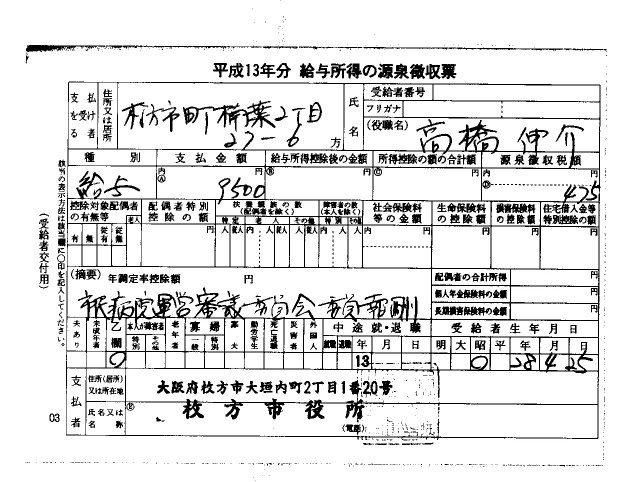 平成13年分 給与所得の源泉徴収票
支払を受ける者
住所又は居所
枚方市町楠葉2丁目
27-6 方
氏名
受給者番号
フリガナ
(役職名)
高橋 伸介
種別 支払金額 給与所得控除後の金額 所得控除の額の合計額 源泉徴収税額
給与 内 Ⓐ 9500 円 Ⓑ 円 Ⓒ 円 内 Ⓓ 475 円
控除対象配偶者の有無等 老人 配偶者特別控除の額 扶養親族の数(配偶者を除く) 障害者の数(本人を除く) 社会保険料等の金額 生命保険料の控除額 損害保険料の控除額 住宅借入金等特別控除の額
特定 老人 その他 特別 その他
有 無 従有 従無 円 人 従人 内 人 従人 人 従人 内 人 人 内 円 円 円 円
(摘要) 年調定率控除額 円
市民病院運営審議委員会 委員報酬
配偶者の合計所得 円
個人年金保険料の金額 円
長期損害保険料の金額 円
夫あり 未成年者 乙欄 本人が障害者 特別 その他 老年者 寡婦 一般 特別 寡夫 勤労学生 死亡退職 災害者 外国人 中途就・退職 受給者生年月日
就職 退職 年 月 日 明 大 昭 平 年 月 日
0 13 0 28 4 25
支払者
住所(居所)又は所在地
大阪府枚方市大垣内町2丁目1番20号
氏名又は名称
Ⓔ 枚方市役所
(電話)
03
(受給者交付用)
該当の表示方法は該当欄に〇印を記入してください。